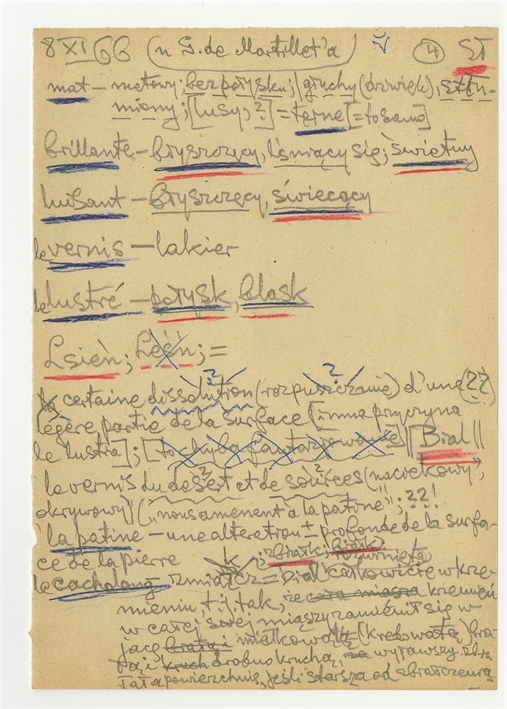 8 XI 66 (u G. de Mortillet'a) 4 St
mat – matowy; bez połysku; głuchy (dźwięk), stłu-
miony; [łusy, ?] = terne [= to samo]
brillante – błyszczący, lśniący się; świetny
luisant – błyszczący, świecący
le vernis – lakier
le lustré – połysk, blask
Lsień; Leśń; =
certaine dissolution (rozpuszczanie) d'une (??)
légère partie de la surface [inna przyczyna
le lustra]; [to chyba fantazjowanie] || Biał ||
le vernis du desert et de sources (naciekowy,
okrywowy) („nous amenent a la patine"; ??!
la patine – une alteration ± profonde de la surfa-
ce de la pierre
le cacholong – zmiatcz = Biał całkowicie w krze-
mieniu, t.j. tak, że cała miąsza krzemieni
w całej swej miąszy zamienił się w
jacą miałkowatą (kredowatą) bra-
drobnokruchą, wyrawszy zbia-
łała powierzchnię, jeśli starsza od zbrałczenia